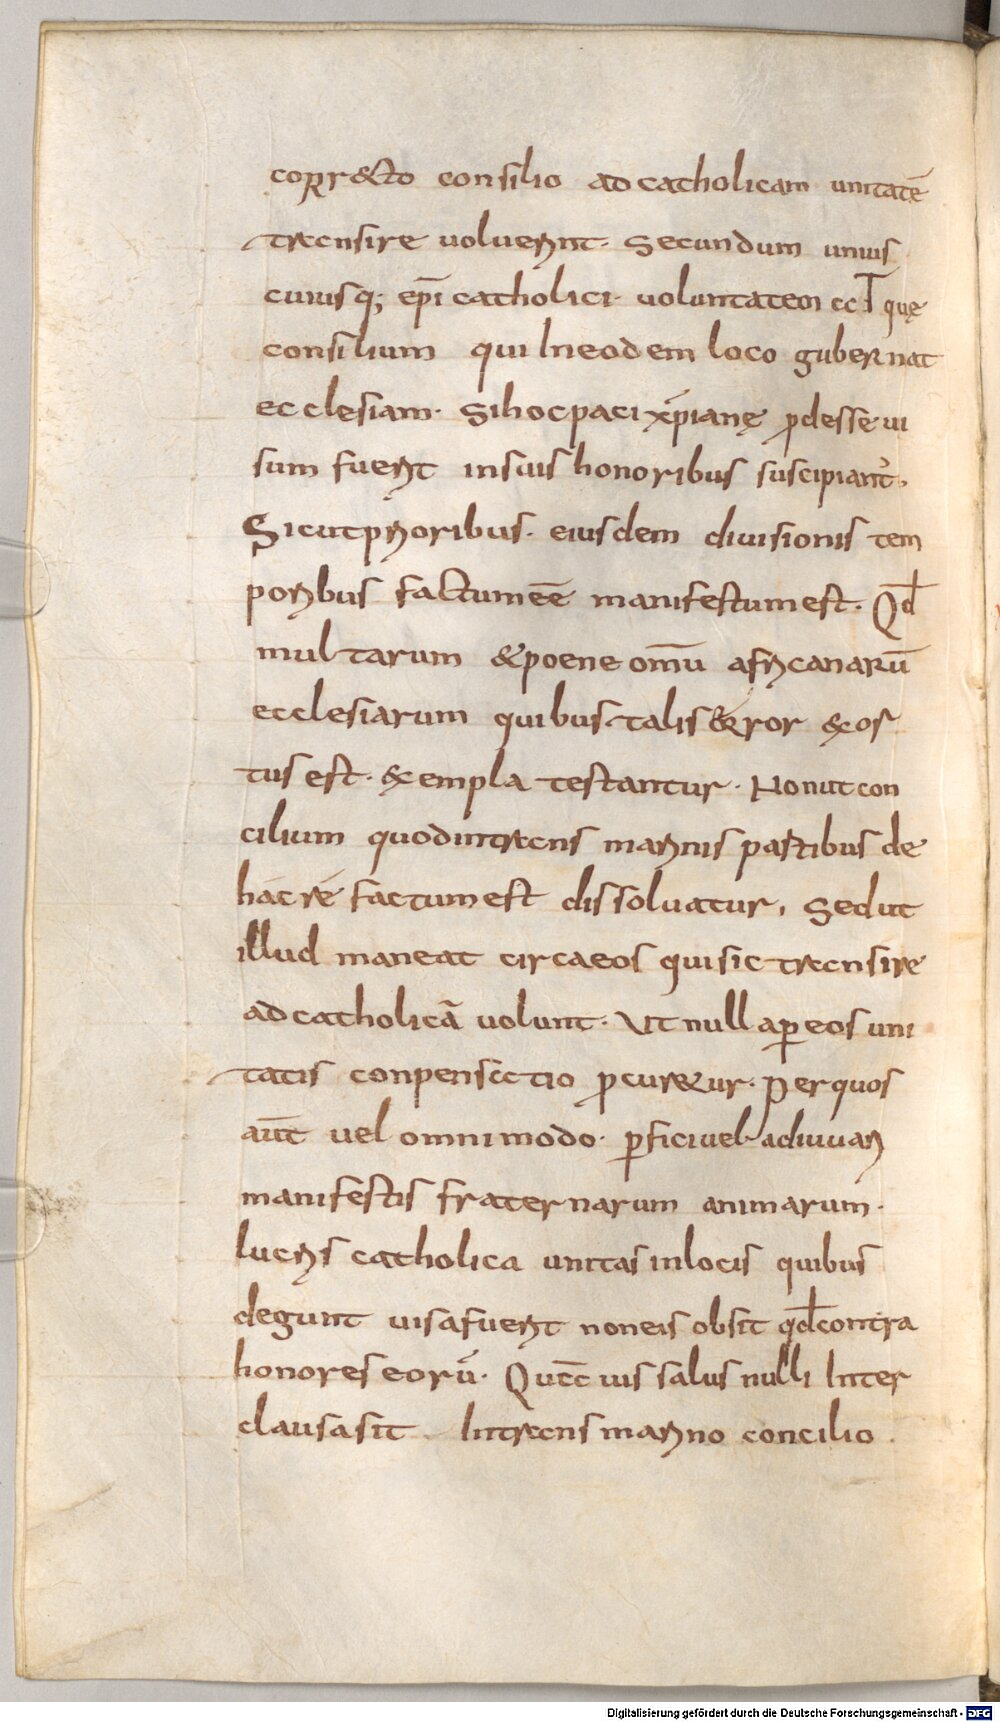 corr&to consilio ad catholicam unitatē
transire voluerint. Secundum unius
cuiusq; ep̄i catholici. voluntatem atque
consilium qui in eodem loco gubernat
ecclesiam. Si hoc paci xp̄ianę ꝓdesse vi
sum fuerit in suis honoribus suscipiant᷑.
Sicut prioribus. eiusdem divisionis tem
poribus factum eē manifestum est. Qđ
multarum & poene omĪū africanarū
ecclesiarum quibus talis error exor
tus est. exempla testantur. Non ut con
cilium quod in transmarinis partibus de
hac re factum est dissolvatur, sed ut
illud maneat circa eos qui sic transire
ad catholicā volunt. Ut nulla ꝑ eos uni
tatis conpensatio ꝓcur&ur. Per quos
aūt vel omnimodo. ꝑfici vel adiuvari
manifestis fraternarum animarum.
lucris catholica unitas in locis quibus
degunt visa fuerit non eis obsit qđ contra
honores eorū. Quāvis salus nulli inter
clausa sit. In transmarino concilio.
Digitalisierung gefördert durch die Deutsche Forschungsgemeinschaft - DFG